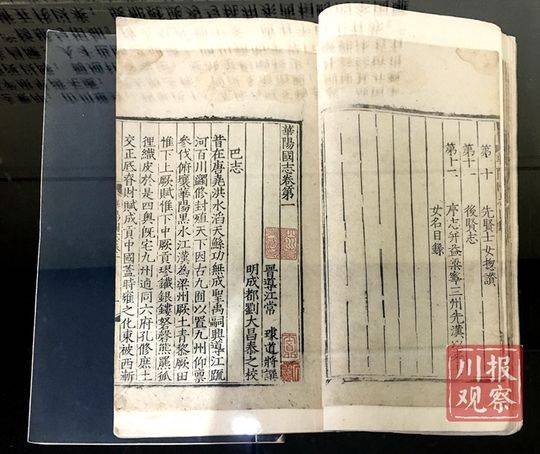 第十　先賢士女總讚
第十一　後賢志
第十二　序志并益梁寧三州先漢以
女名目錄
華陽國志卷第一
晉導江常　璩道將譔
明成都劉大昌泰之校
巴志
昔在唐堯洪水滔天鯀功無成聖禹嗣興導江䟽
河百川蠲修封殖天下因古九囿以置九州仰稟
參伐俯壤華陽黑水江漢為梁州厥土青黎厥田
惟下上厥賦惟下中厥貢璆鐵銀鏤砮磬熊羆狐
狸織皮於是四奧既宅九州逌同六府孔修庶土
交正厎眘財賦成貢中國蓋時雍之化東被西漸
川报
观察